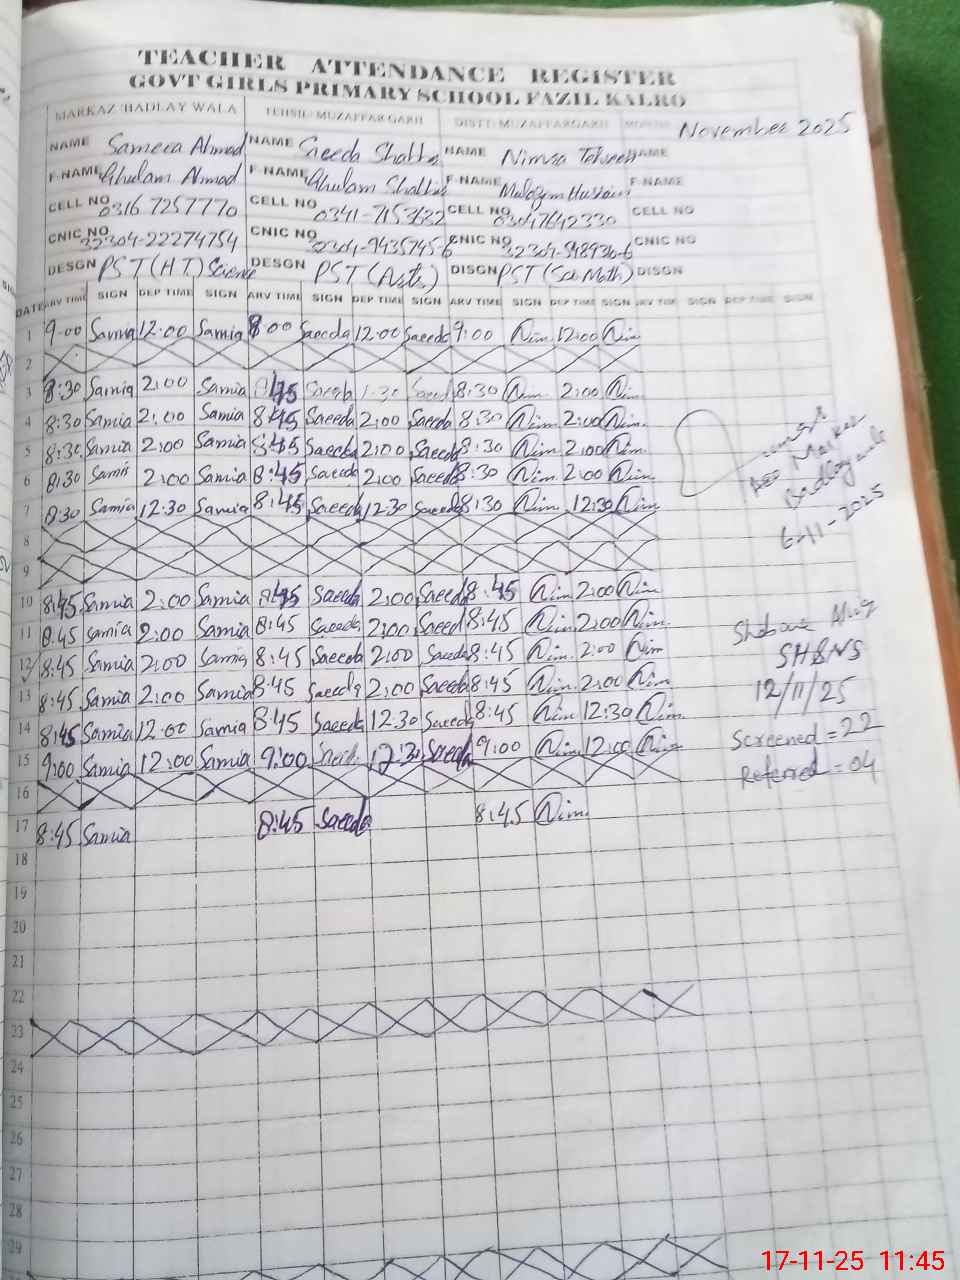 TEACHER ATTENDANCE REGISTER
GOVT GIRLS PRIMARY SCHOOL FAZIL KALRO
MARKAZ: BADLAY WALA TEHSIL: MUZAFFAR GARH DISTT: MUZAFFARGARH November 2025
NAME Sameea Ahmad NAME Saeeda Shabbir NAME Nimra NAME
F-NAME Ghulam Ahmad F-NAME Ghulam Shabbir F-NAME Hussain F-NAME
CELL NO 0316 7257770 CELL NO 0341-7153632 CELL NO 03047642330 CELL NO
CNIC NO 32304-22274754 CNIC NO CNIC NO CNIC NO
DESGN PST (HT) Science DESGN PST (Arts) DISGN PST (Sci Math) DISGN
DATE ARV TIME SIGN DEP TIME SIGN ARV TIME SIGN DEP TIME SIGN ARV TIME SIGN DEP TIME SIGN ARV TIME SIGN DEP TIME SIGN
1 9:00 Samia 12:00 Samia 8:00 Saeeda 12:00 Saeeda 9:00 Nim 12:00 Nim
2
3 8:30 Samia 2:00 Samia 8:45 Saeeda 1:30 Saeed 8:30 Nim 2:00 Nim
4 8:30 Samia 2:00 Samia 8:45 Saeeda 2:00 Saeeda 8:30 Nim 2:00 Nim
5 8:30 Samia 2:00 Samia 8:45 Saeeda 2:00 Saeeda 8:30 Nim 2:00 Nim
6 8:30 Samia 2:00 Samia 8:45 Saeeda 2:00 Saeeda 8:30 Nim 2:00 Nim
7 8:30 Samia 12:30 Samia 8:45 Saeeda 12:30 Saeeda 8:30 Nim 12:30 Nim
AEO Markaz
Badlay wala
6-11-2025
8
9
10 8:45 Samia 2:00 Samia 8:45 Saeeda 2:00 Saeeda 8:45 Nim 2:00 Nim
11 8:45 Samia 2:00 Samia 8:45 Saeeda 2:00 Saeed 8:45 Nim 2:00 Nim
12 8:45 Samia 2:00 Samia 8:45 Saeeda 2:00 Saeeda 8:45 Nim 2:00 Nim
13 8:45 Samia 2:00 Samia 8:45 Saeeda 2:00 Saeeda 8:45 Nim 2:00 Nim
14 8:45 Samia 12:00 Samia 8:45 Saeeda 12:30 Saeeda 8:45 Nim 12:30 Nim
15 9:00 Samia 12:00 Samia 9:00 Saeed 12:30 Saeeda 9:00 Nim 12:00 Nim
SH&NS
12/11/25
Screened = 22
Referred = 04
16
17 8:45 Samia 8:45 Saeeda 8:45 Nim
18
19
20
21
22
23
24
25
26
27
28
29
17-11-25 11:45